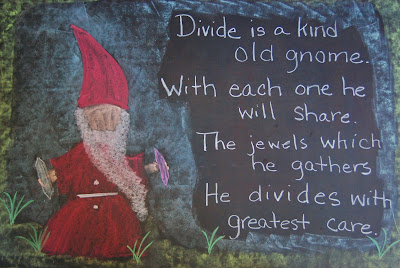 Divide is a kind
old gnome.
With each one he
will share.
The jewels which
he gathers
He divides with
greatest care.